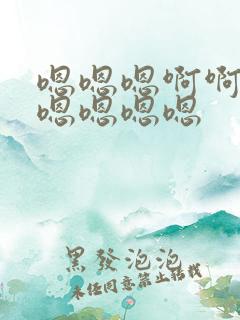 嗯嗯嗯啊啊
嗯嗯嗯嗯
黑發泡泡
未经同意禁止转载